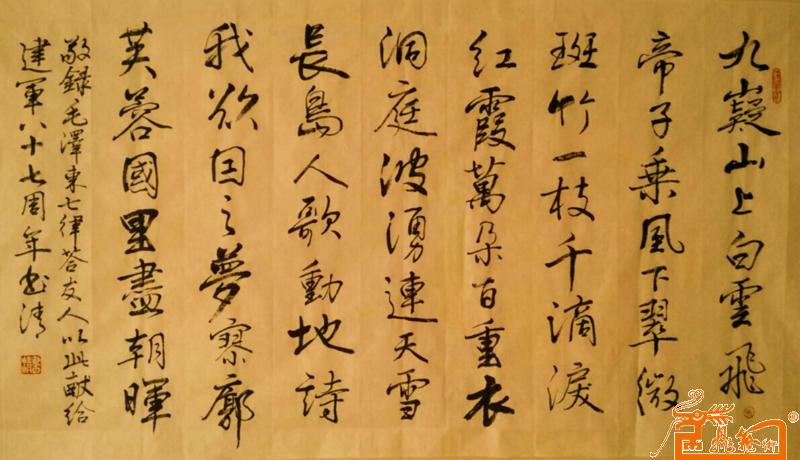 九嶷山上白雲飛
帝子乘風下翠微
斑竹一枝千滴淚
紅霞萬朵百重衣
洞庭波湧連天雪
長島人歌動地詩
我欲因之夢寥廓
芙蓉國里盡朝暉
敬録毛澤東七律荅友人以此獻給
建軍八十七周年 清